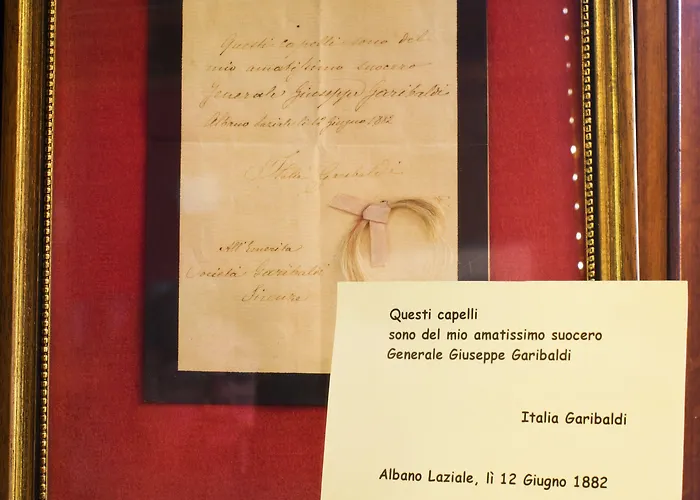 Questi capelli sono del
mio amatissimo suocero
Generale Giuseppe Garibaldi
Albano Laziale li 12 Giugno 1882
Garibaldi
All'Onorita
Società Garibaldi
Firenze
Questi capelli
sono del mio amatissimo suocero
Generale Giuseppe Garibaldi
Italia Garibaldi
Albano Laziale, lì 12 Giugno 1882